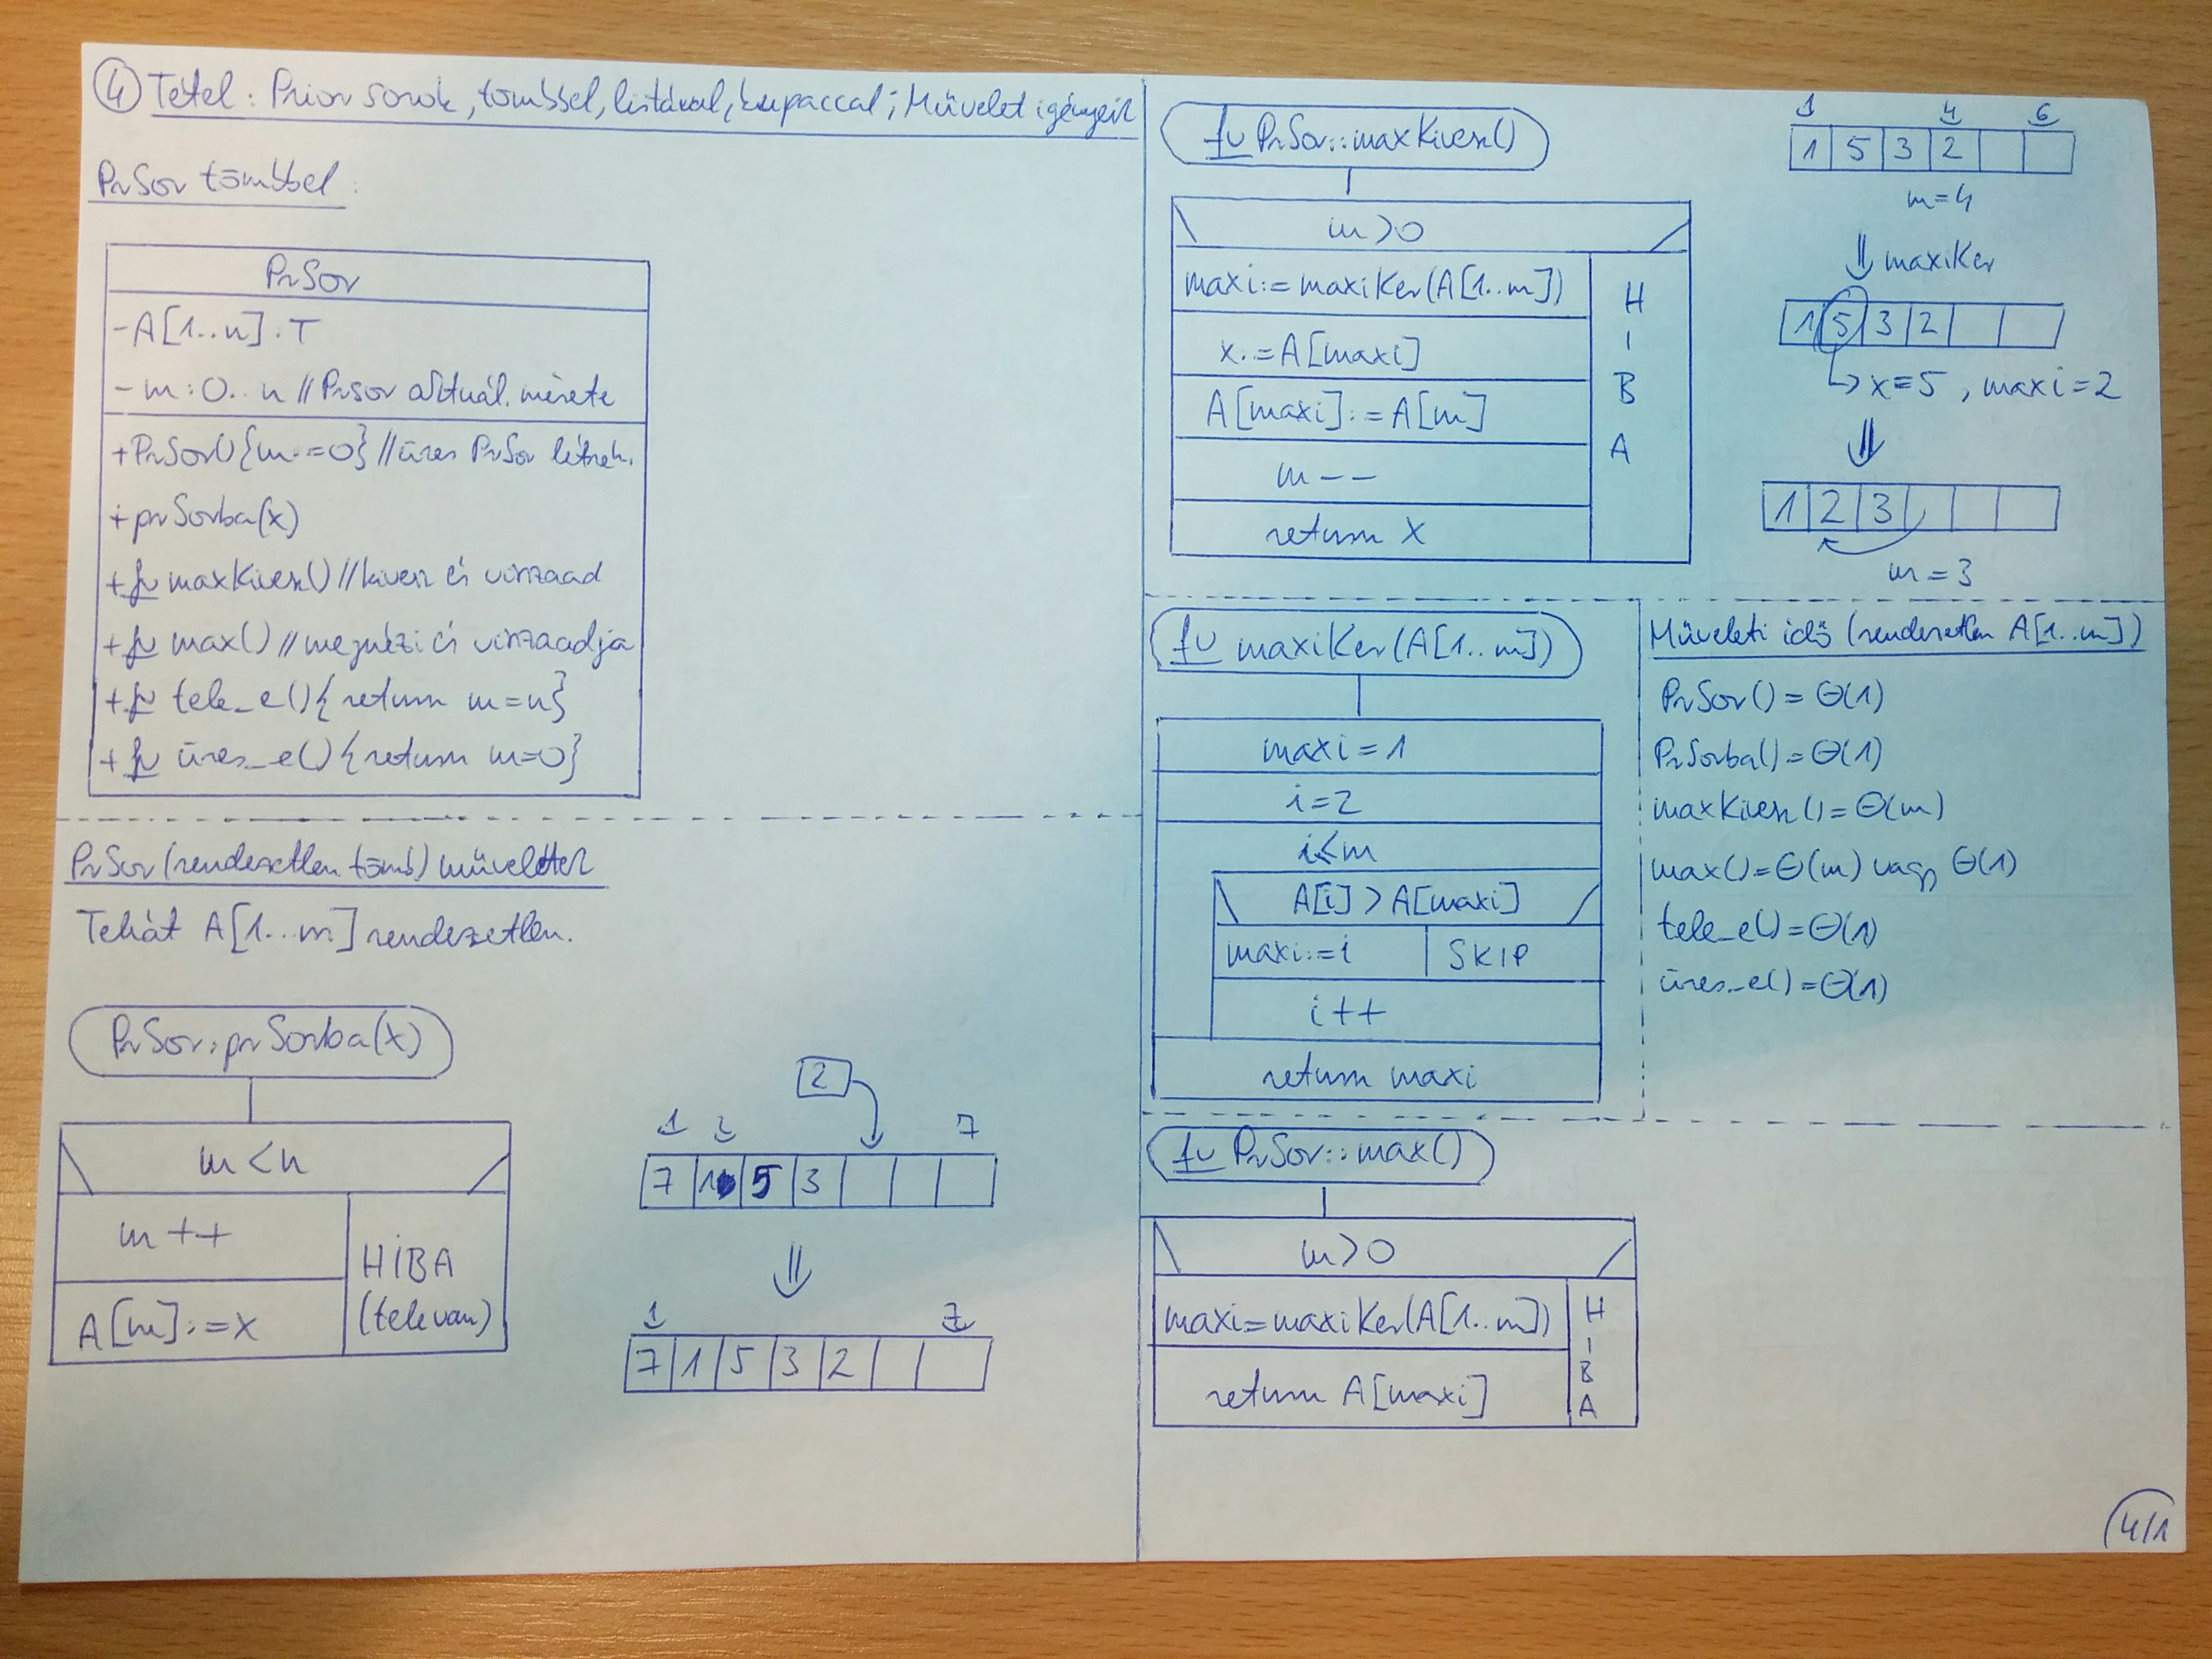 ④ Tétel: Prior sorok, tömbbel, listával, kupaccal; Művelet igényeik
PrSor tömbbel:
PrSor
-A[1..n]:T
-m:0..n //Prsor aktuál. mérete
+PrSor(){m:=0} //üres PrSor létreh.
+prSorba(x)
+fv maxKivesz() //kivesz és visszaad
+fv max() //megnézi és visszaadja
+fv tele_e(){return m=n}
+fv üres_e(){return m=0}
PrSor(rendezetlen tömb) műveletek
Tehát A[1..m] rendezetlen.
PrSor::prSorba(x)
m<n
m++
A[m]:=x
HIBA
(tele van)
2
1 2 7
7 1 5 3
⇓
1 7
7 1 5 3 2
fv PrSor::maxKivesz()
m>0
maxi:=maxiKer(A[1..m])
x:=A[maxi]
A[maxi]:=A[m]
m--
return x
H
I
B
A
1 4 6
1 5 3 2
m=4
⇓ maxiKer
1 5 3 2
↳ x=5, maxi=2
⇓
1 2 3
m=3
fv maxiKer(A[1..m])
maxi=1
i=2
i≤m
A[i]>A[maxi]
maxi:=i SKIP
i++
return maxi
Műveleti idő (rendezetlen A[1..m])
PrSor()=Θ(1)
PrSorba()=Θ(1)
maxKivesz()=Θ(m)
max()=Θ(m) vagy Θ(1)
tele_e()=Θ(1)
üres_e()=Θ(1)
fv PrSor::max()
m>0
maxi=maxiKer(A[1..m])
return A[maxi]
H
I
B
A
4/1